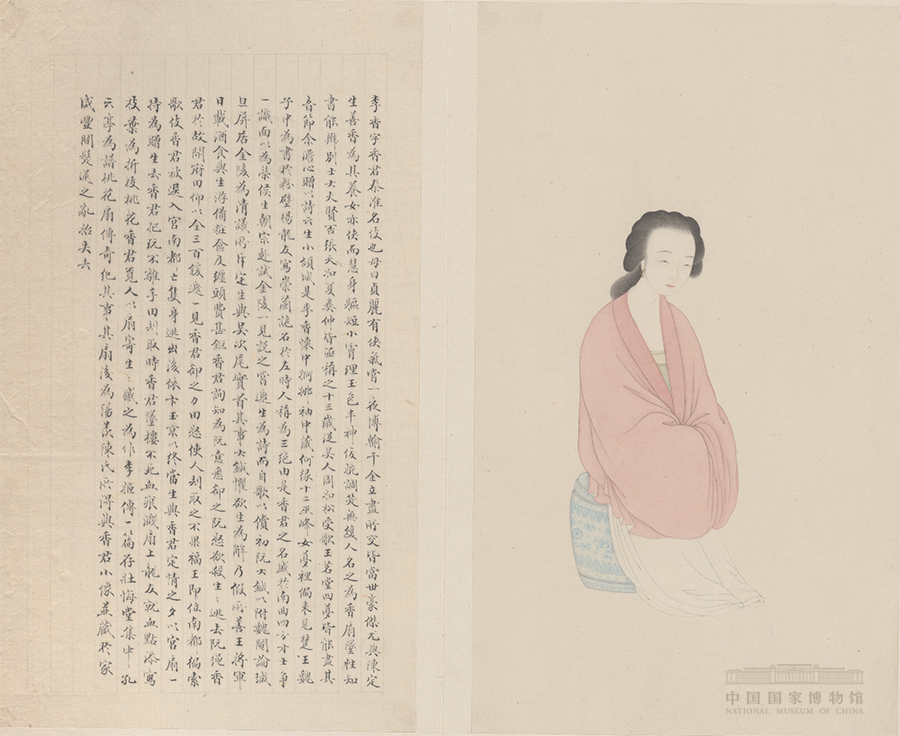 李香字香君秦淮名伎也母曰貞麗有俠氣嘗一夜博輸千金立盡所交皆當世豪傑尤與陳定
生善香為其養女亦俠而慧身軀短小膚理玉色丰神俊婉調笑無雙人名之為香扇墜性知
書能辨別士大夫賢否張天如夏彝仲皆亟稱之十三歲從吳人周如松受歌玉茗堂四夢皆能盡其
音節余澹心贈以詩云生小傾城是李香懷中婀娜袖中藏何緣十二巫峰女夢裡偏來見楚王魏
子中為書於粉壁楊龍友寫崇蘭詭石於左時人稱為三絕由是香君之名盛於南曲四方才士爭
一識面以為榮侯生朝宗赴試金陵一見悅之嘗邀生為詩而自歌以償初阮大鋮以附魏閹論城
旦屏居金陵為清議所斥定生與吳次尾實首其事大鋮懼欲生為解乃假所善王將軍
日載酒食與生游備粧奩及纏頭費甚鉅香君詢知為阮意悉却之阮怒欲殺生生逃去阮繩香
君於故開府田仰以金三百鍰邀一見香君却之力田怒使人刦取之不果福王即位南都徧索
歌伎香君被選入宮南都亡隻身逃出後依卞玉京以終當生與香君定情之夕以宮扇一
持為贈生去香君把玩不離手田刦取時香君墜樓不死血痕濺扇上龍友就血點添寫
枝葉為折枝桃花香君覓人以扇寄生生感之為作李姬傳一篇存壯悔堂集中孔
云亭為譜桃花扇傳奇紀其事其扇後為陽羨陳氏所得與香君小像並藏於家
咸豐間髮逆之亂始失去
中国国家博物馆
NATIONAL MUSEUM OF CHINA